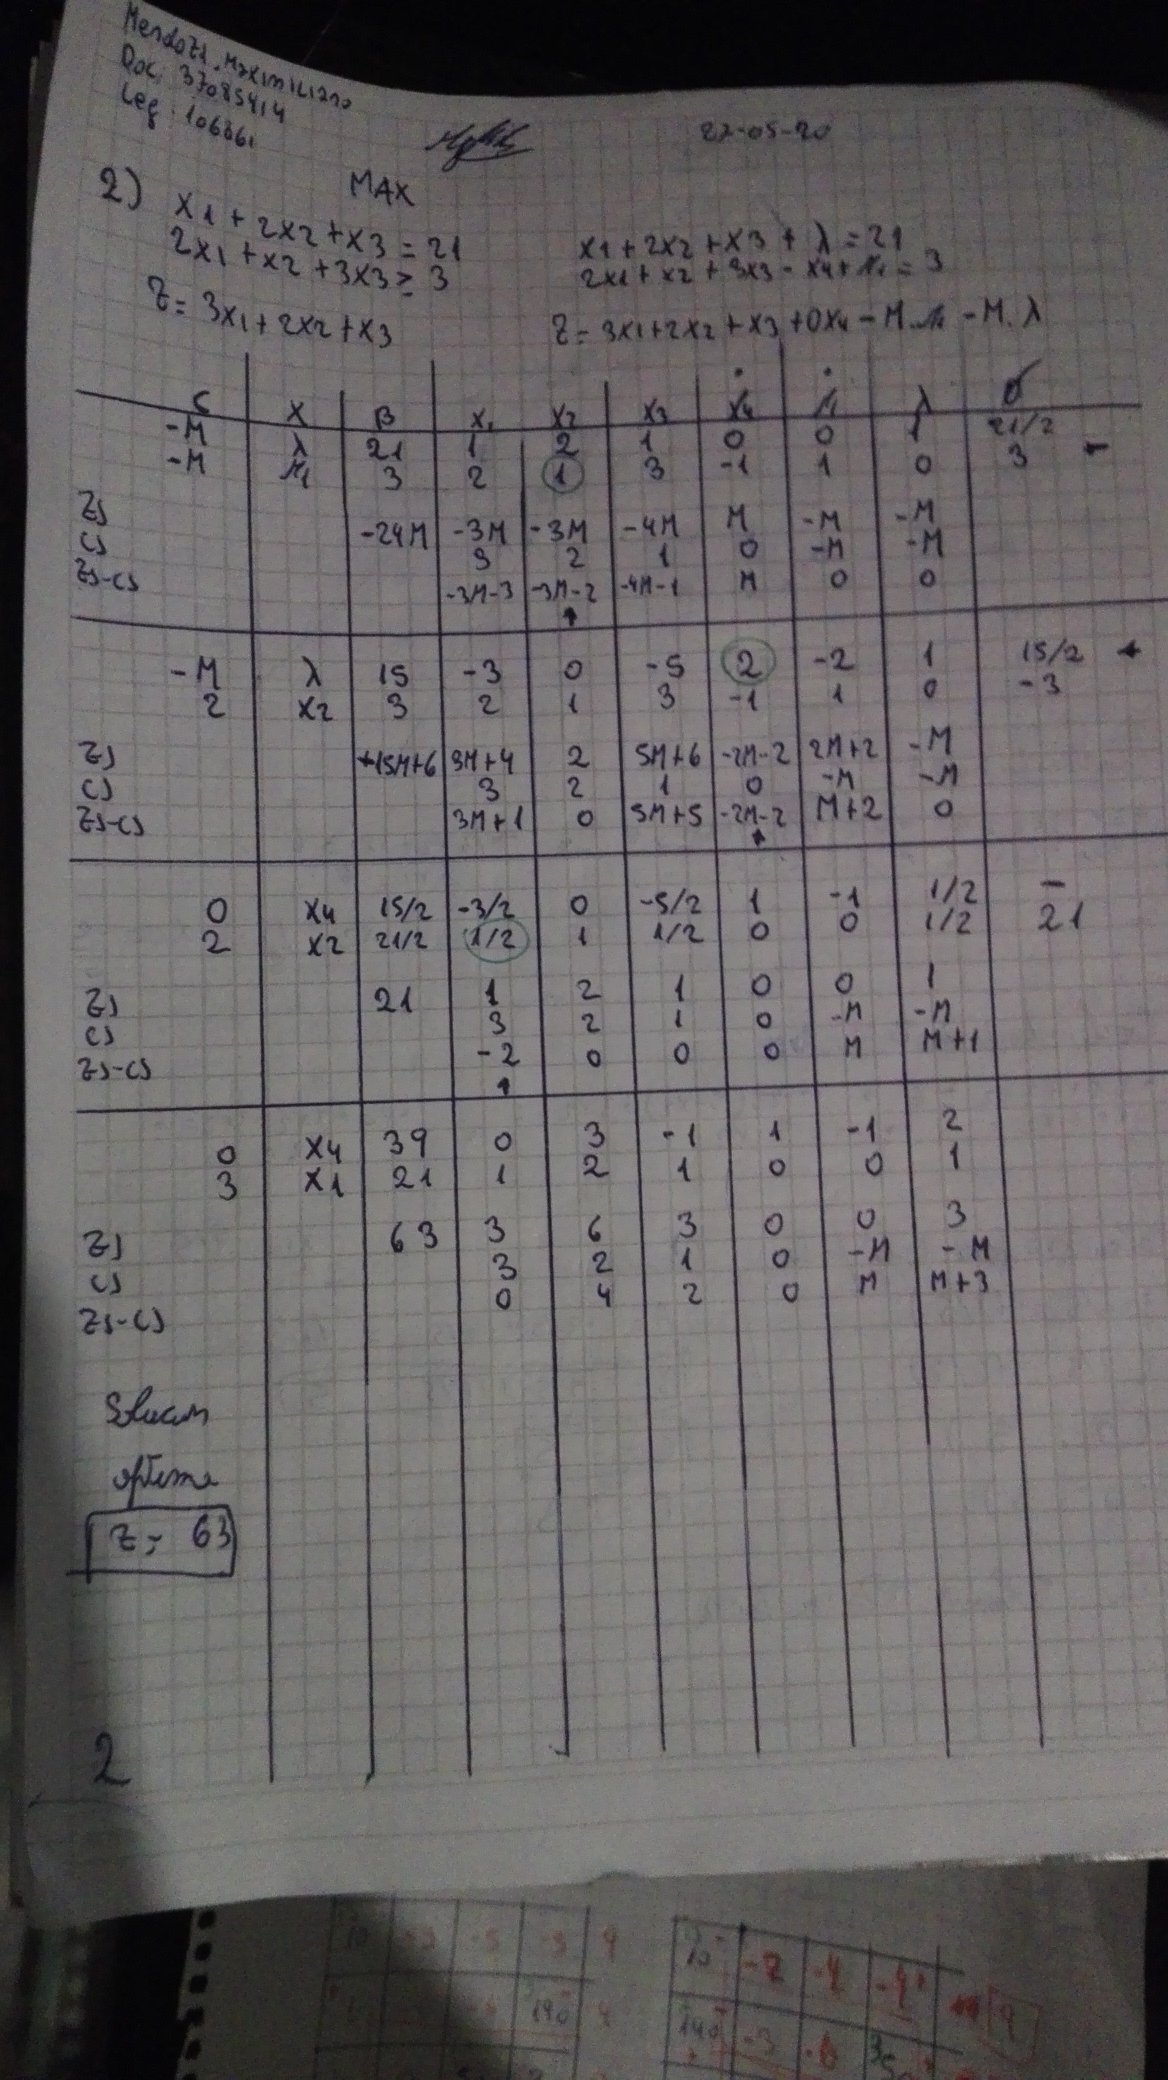 Mendoza, Maximiliano
Doc: 37085414
Leg: 106861
22-05-20
2) MAX
x1 + 2x2 + x3 = 21
2x1 + x2 + 3x3 ≥ 3
Z = 3x1 + 2x2 + x3
x1 + 2x2 + x3 + λ = 21
2x1 + x2 + 3x3 - x4 + μ1 = 3
Z = 3x1 + 2x2 + x3 + 0x4 - M.μ1 - M.λ
C X B x1 x2 x3 x4 μ1 λ σ
-M λ 21 1 2 1 0 0 1 21/2
-M μ1 3 2 1 3 -1 1 0 3 -
ZJ -24M -3M -3M -4M M -M -M
CJ 3 2 1 0 -M -M
ZJ-CJ -3M-3 -3M-2 -4M-1 M 0 0
-M λ 15 -3 0 -5 2 -2 1 15/2
2 x2 3 2 1 3 -1 1 0 -3
ZJ +15M+6 3M+4 2 5M+6 -2M-2 2M+2 -M
CJ 3 2 1 0 -M -M
ZJ-CJ 3M+1 0 5M+5 -2M-2 M+2 0
0 x4 15/2 -3/2 0 -5/2 1 -1 1/2 -
2 x2 21/2 1/2 1 1/2 0 0 1/2 21
ZJ 21 1 2 1 0 0 1
CJ 3 2 1 0 -M -M
ZJ-CJ -2 0 0 0 M M+1
0 x4 39 0 3 -1 1 -1 2
3 x1 21 1 2 1 0 0 1
ZJ 63 3 6 3 0 0 3
CJ 3 2 1 0 -M -M
ZJ-CJ 0 4 2 0 M M+3
Solucion
optima
Z = 63
2